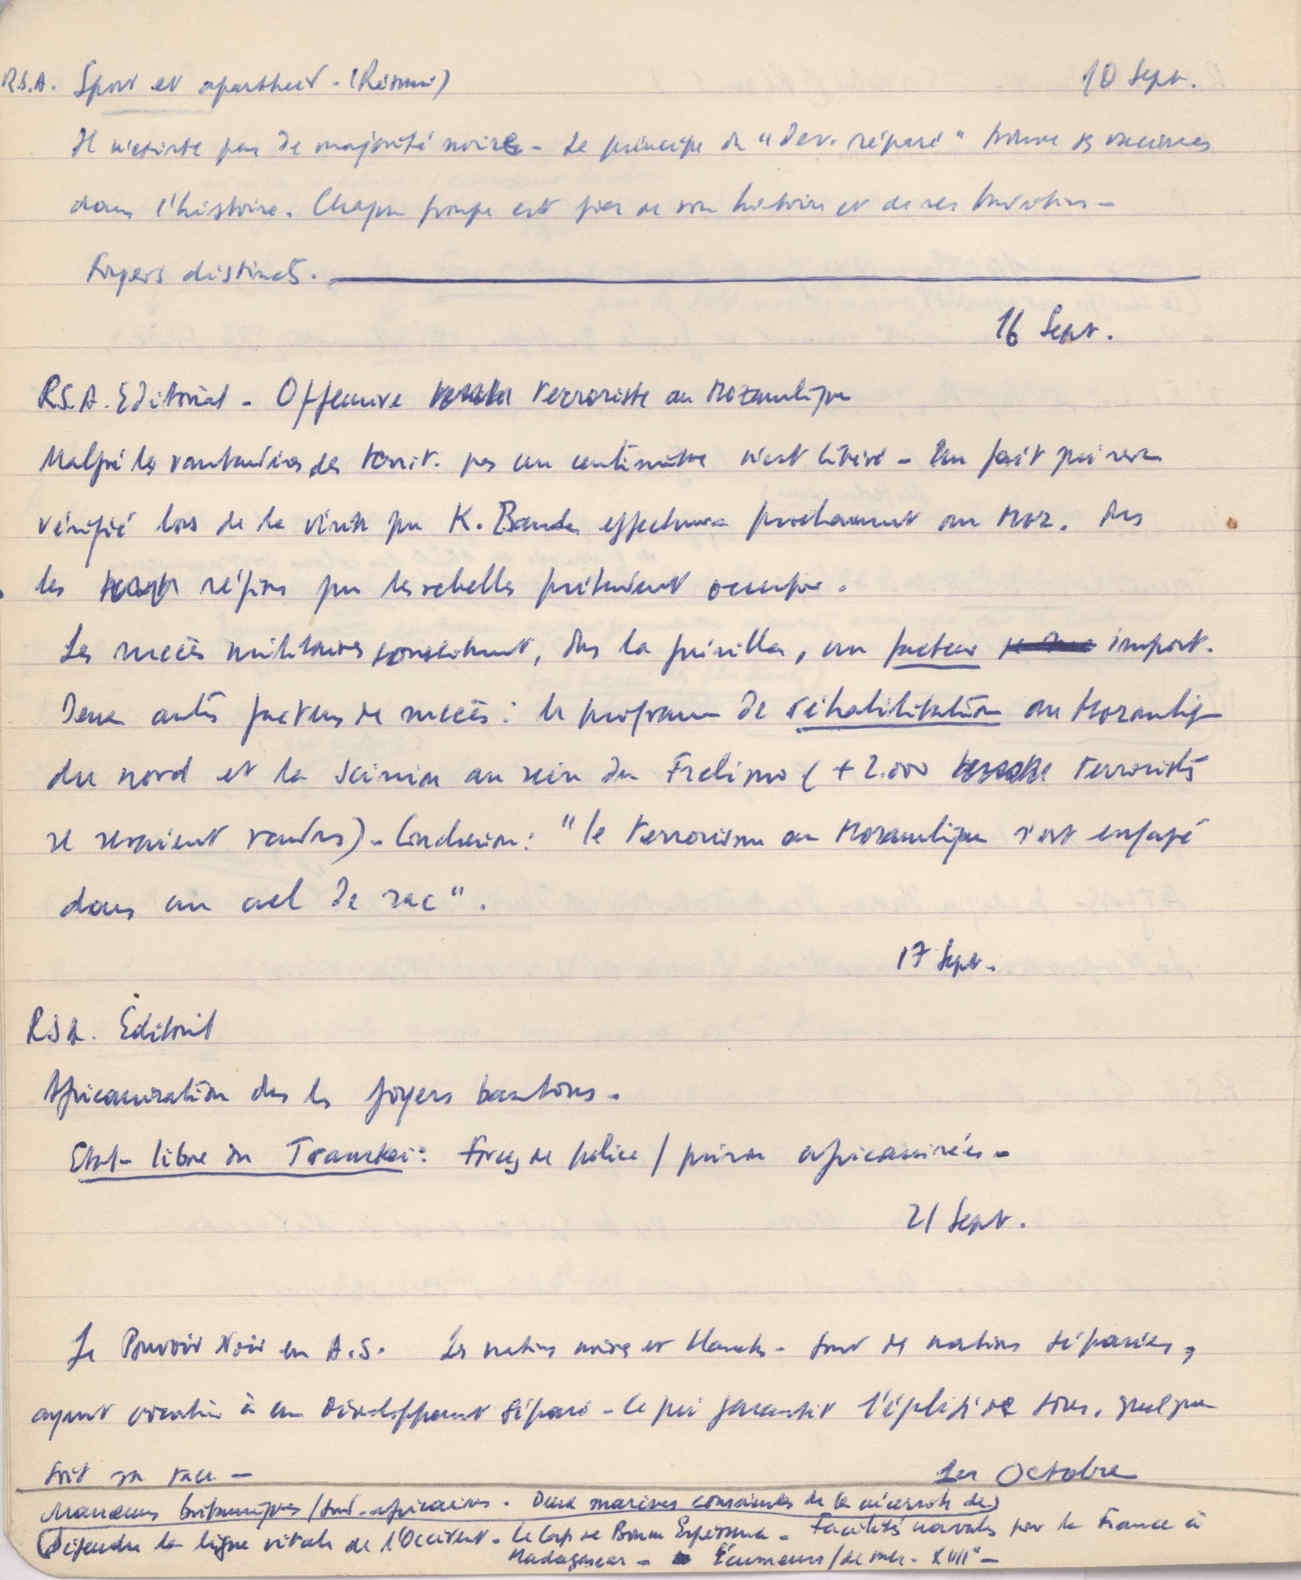 R.S.A. Sport et apartheid - (Résumé) 10 Sept.
Il n'existe pas de majorité noire - Le principe du "dev. séparé" trouve ses racines
dans l'histoire. Chaque groupe est fier de son histoire et de ses traditions -
Foyers distincts.
16 Sept.
R.S.A. Editorial - Offensive terroriste au Mozambique
Malgré les vantardises des terror. pas un centimètre n'est libéré - Un fait qui sera
vérifié lors de la visite que K. Banda effectuera prochainement au Moz. ds
les régions que les rebelles prétendent occuper.
Les succès militaires constituent, ds la guérilla, un facteur import.
Deux autres facteurs de succès : le programme de réhabilitation au Mozambique
du nord et la scission au sein du Frelimo (+ 2.000 terroristes
se seraient rendus) - Conclusion : "le terrorisme au Mozambique s'est engagé
dans un cul de sac".
17 Sept.
RSA. Editorial
Africanisation ds les foyers bantous -
Etat libre du Transkei : Forces de police / prison africanisées -
21 Sept.
Le Pouvoir Noir en A.S. Les nations noires et blanches - sont des nations séparées,
ayant vocation à un développement séparé - Ce qui garantit l'égalité de tous, quelque
soit sa race -
1er Octobre
Manœuvres britanniques / sud-africaines. Deux marines conscientes de la nécessité de
défendre la ligne vitale de l'Occident - Le Cap de Bonne Espérance - Facilités navales par la France à
Madagascar - Ecumeurs / de mer - XVIIe -